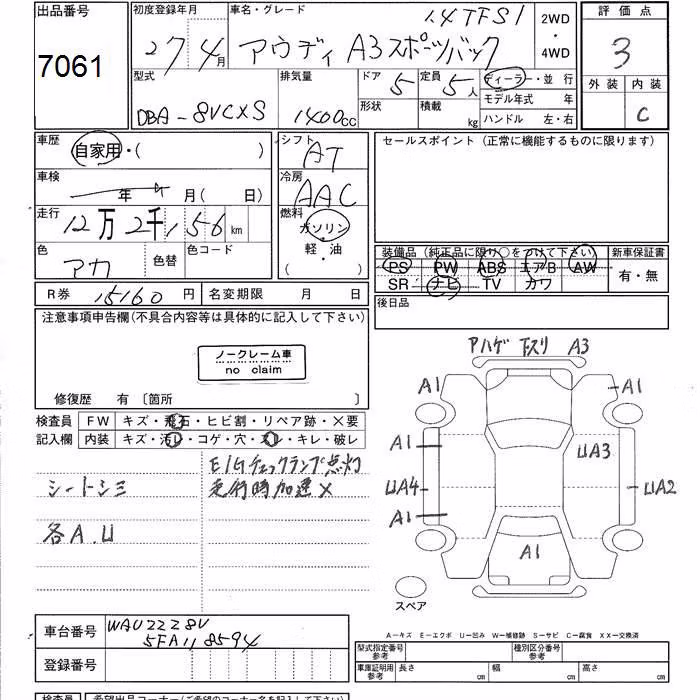 出品番号 初度登録年月 車名・グレード 1.4 TFSI 2WD・4WD 評価点
7061 27年4月 アウディ A3スポーツバック 3
型式 排気量 ドア 5 定員 5人 ディーラー・並行 外装 内装
DBA-8VCXS 1400cc 形状 積載 kg モデル年式 年 C
ハンドル 左・右
車歴 自家用・( ) シフト AT セールスポイント (正常に機能するものに限ります)
車検 年 月 ( 日) 冷房 AAC
走行 12万2千156km 燃料 ガソリン・軽・油 ( )
色 アカ 色替 色コード
装備品 (純正品に限り○をつけて下さい) 新車保証書
PS PW ABS エアB AW 有・無
SR ナビ TV カワ
R券 15160円 名変期限 月 日 後日品
注意事項申告欄(不具合内容等は具体的に記入して下さい)
ノークレーム車
no claim
修復歴 有 〔箇所 〕
検査員 FW キズ・飛石・ヒビ割・リペア跡・×要
記入欄 内装 キズ・汚レ・コゲ・穴・スレ・キレ・破レ
E/Gチェックランプ点灯
シートシミ 走行時加速×
各A.U
Pハゲ 下スリ A3
A1 A1
A1 UA3
UA4 UA2
A1
A1
スペア
車台番号 WAUZZZ8V
5FA118594
登録番号
A－キズ E－エクボ U－凹み W－補修跡 S－サビ C－腐食 XX－交換済
型式指定番号 参考 種別区分番号 参考
車庫証明用 参考 長さ cm 幅 cm 高さ cm
検査員 希望出品コーナー(ご希望のコーナー名を記入下さい)